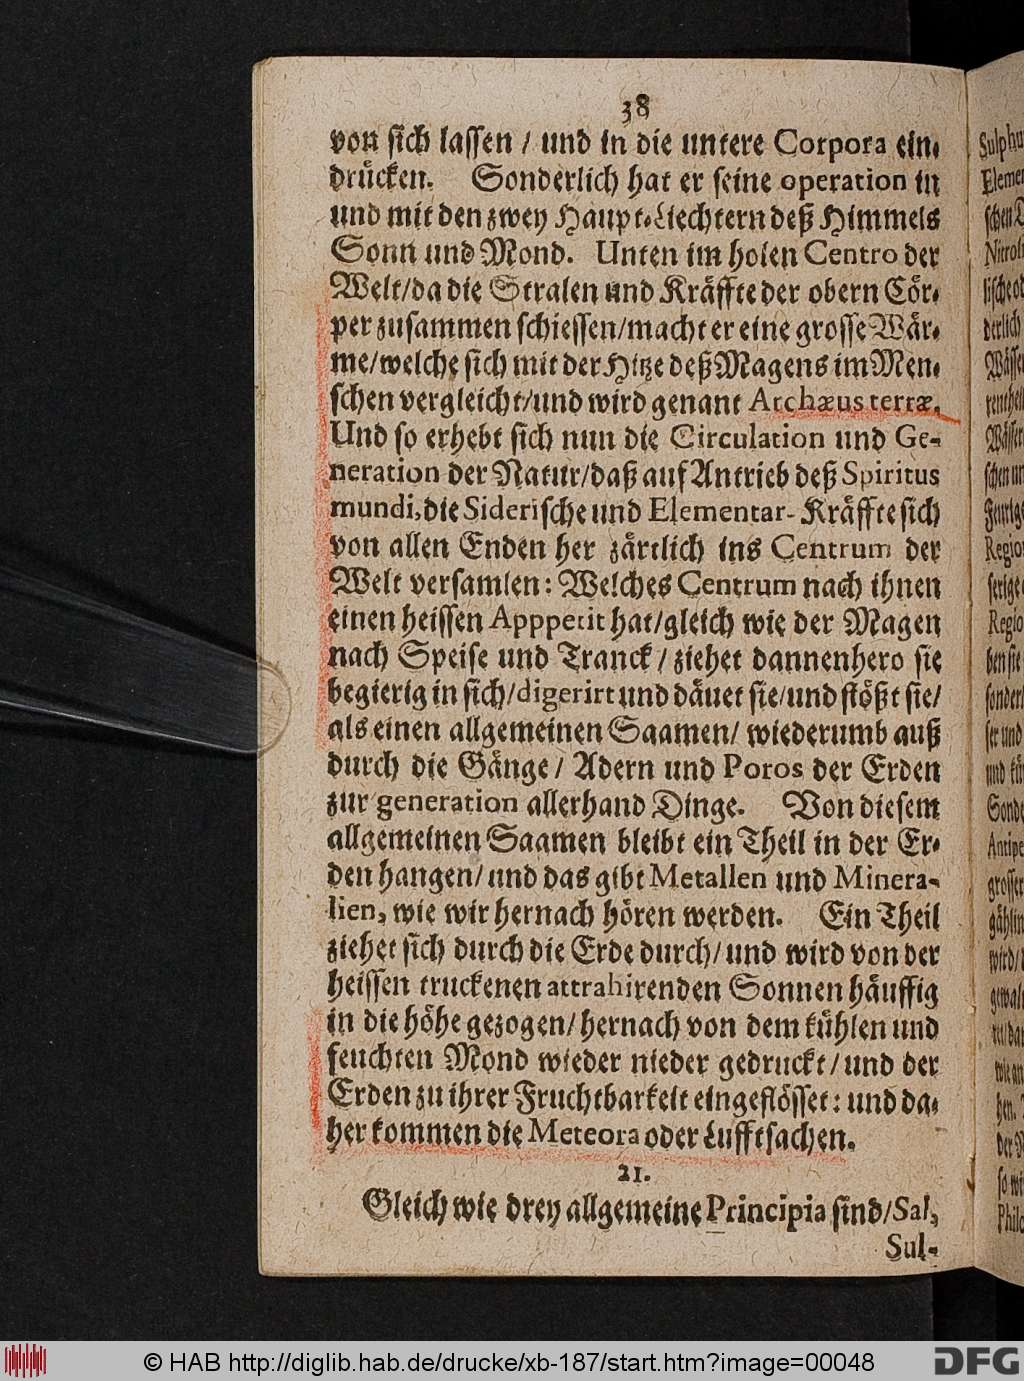 38
von sich lassen / und in die untere Corpora ein-
drücken. Sonderlich hat er seine operation in
und mit den zwey Haupt-Liechtern deß Himmels
Sonn und Mond. Unten im holen Centro der
Welt/ da die Stralen und Kräffte der obern Cör-
per zusammen schiessen/ macht er eine grosse Wär-
me/ welche sich mit der Hitze deß Magens im Men-
schen vergleicht/ und wird genant Archæus terræ.
Und so erhebt sich nun die Circulation und Ge-
neration der Natur/ daß auf Antrieb deß Spiritus
mundi, die Siderische und Elementar- Kräffte sich
von allen Enden her zärtlich ins Centrum der
Welt versamlen: Welches Centrum nach ihnen
einen heissen Apppetit hat/ gleich wie der Magen
nach Speise und Tranck / ziehet dannenhero sie
begierig in sich/ digerirt und däuet sie/ und stößt sie/
als einen allgemeinen Saamen/ wiederumb auß
durch die Gänge / Adern und Poros der Erden
zur generation allerhand Dinge. Von diesem
allgemeinen Saamen bleibt ein Theil in der Er-
den hangen/ und das gibt Metallen und Minera-
lien, wie wir hernach hören werden. Ein Theil
ziehet sich durch die Erde durch/ und wird von der
heissen truckenen attrahirenden Sonnen häuffig
in die höhe gezogen/ hernach von dem kühlen und
feuchten Mond wieder nieder gedruckt / und der
Erden zu ihrer Fruchtbarkeit eingeflösset: und da-
her kommen die Meteora oder Lufftsachen.
21.
Gleich wie drey allgemeine Principia sind/ Sal,
Sul-
© HAB http://diglib.hab.de/drucke/xb-187/start.htm?image=00048
DFG